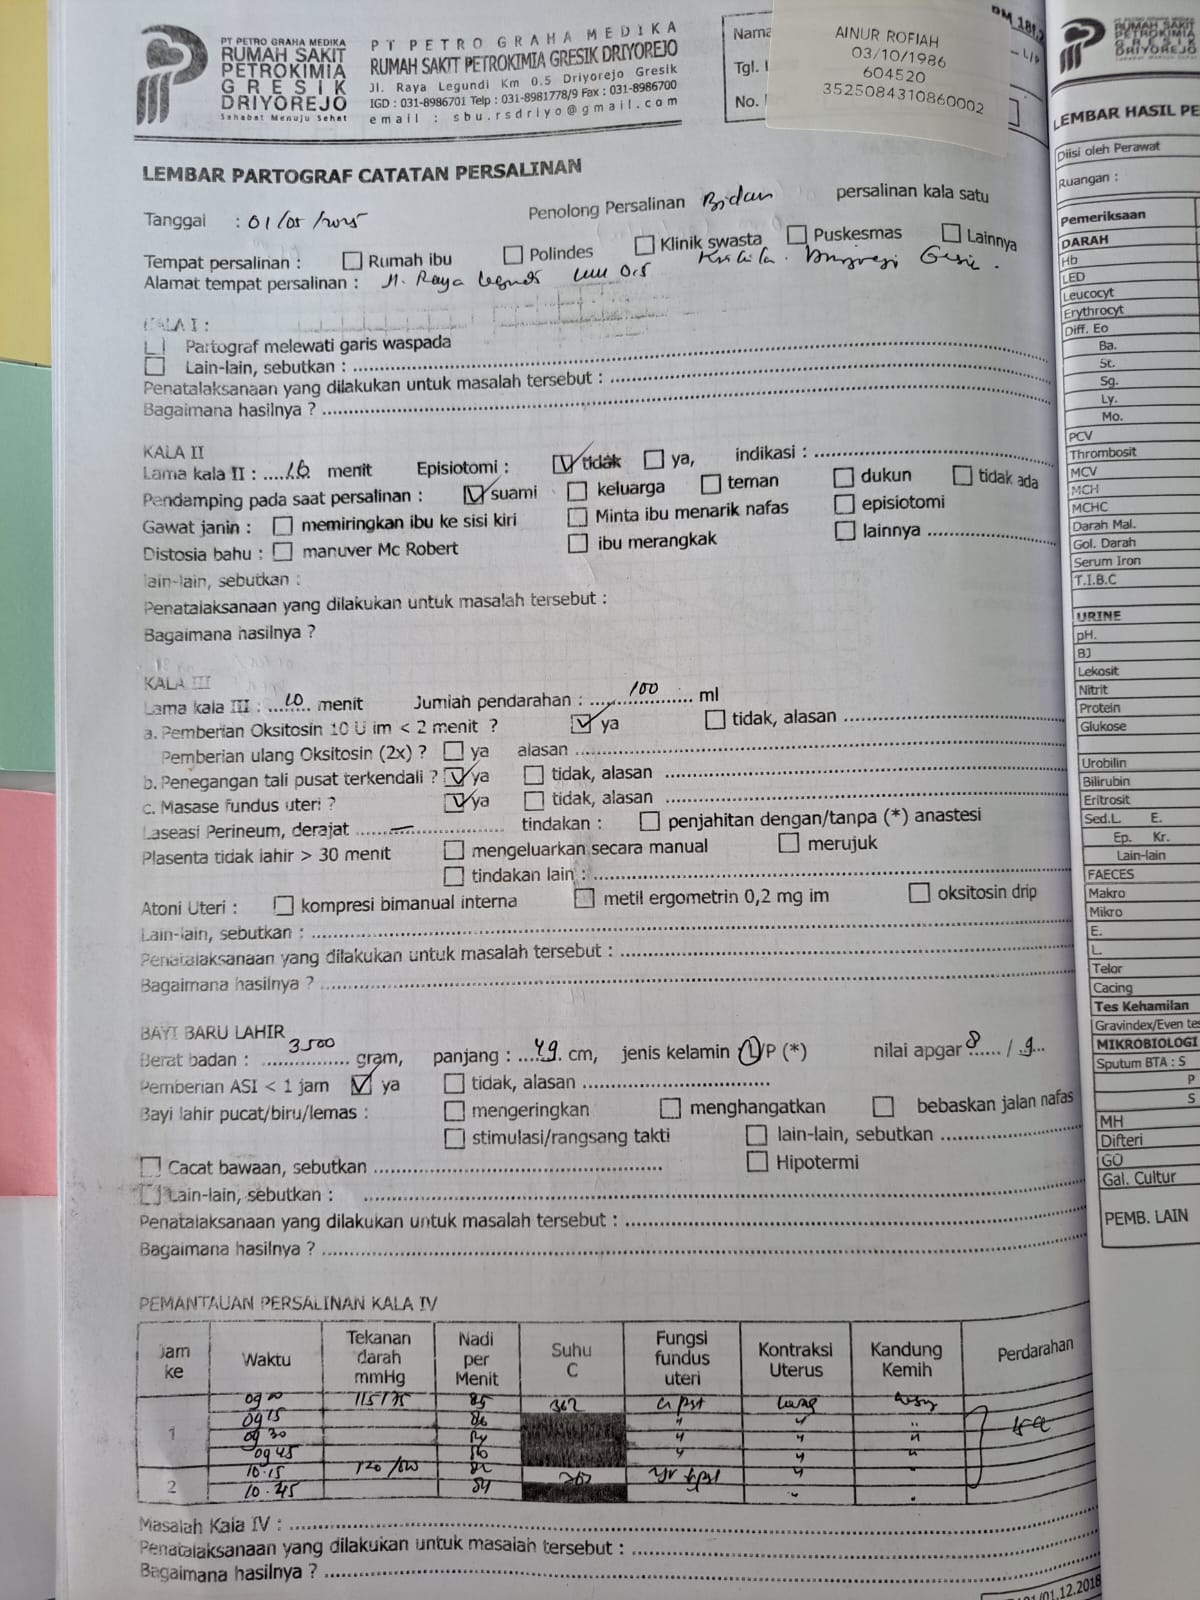 PT PETRO GRAHA MEDIKA
RUMAH SAKIT
PETROKIMIA
GRESIK
DRIYOREJO
Sahabat Menuju Sehat
PT PETRO GRAHA MEDIKA
RUMAH SAKIT PETROKIMIA GRESIK DRIYOREJO
Jl. Raya Legundi Km 0.5 Driyorejo Gresik
IGD : 031-8986701 Telp : 031-8981778/9 Fax : 031-8986700
email : sbu.rsdriyo@gmail.com
Nama
Tgl.
No.
AINUR ROFIAH
03/10/1986
604520
3525084310860002
L/P
LEMBAR PARTOGRAF CATATAN PERSALINAN
Tanggal : 01/05/2025 Penolong Persalinan Bidan persalinan kala satu
Tempat persalinan : Rumah ibu Polindes Klinik swasta Puskesmas Lainnya
Alamat tempat persalinan : Jl. Raya Legundi km 0.5
KALA I :
Partograf melewati garis waspada
Lain-lain, sebutkan :
Penatalaksanaan yang dilakukan untuk masalah tersebut :
Bagaimana hasilnya ?
KALA II
Lama kala II : 16 menit Episiotomi : tidak ya, indikasi :
Pendamping pada saat persalinan : suami keluarga teman dukun tidak ada
Gawat janin : memiringkan ibu ke sisi kiri Minta ibu menarik nafas episiotomi
Distosia bahu : manuver Mc Robert ibu merangkak lainnya
lain-lain, sebutkan :
Penatalaksanaan yang dilakukan untuk masalah tersebut :
Bagaimana hasilnya ?
KALA III
Lama kala III : 10 menit Jumlah pendarahan : 100 ml
a. Pemberian Oksitosin 10 U im < 2 menit ? ya tidak, alasan
Pemberian ulang Oksitosin (2x) ? ya alasan
b. Penegangan tali pusat terkendali ? ya tidak, alasan
c. Masase fundus uteri ? ya tidak, alasan
Laseasi Perineum, derajat — tindakan : penjahitan dengan/tanpa (*) anastesi
Plasenta tidak lahir > 30 menit mengeluarkan secara manual merujuk
tindakan lain :
Atoni Uteri : kompresi bimanual interna metil ergometrin 0,2 mg im oksitosin drip
Lain-lain, sebutkan :
Penatalaksanaan yang dilakukan untuk masalah tersebut :
Bagaimana hasilnya ?
BAYI BARU LAHIR
Berat badan : 3500 gram, panjang : 49 cm, jenis kelamin L/P (*) nilai apgar 8 / 9
Pemberian ASI < 1 jam ya tidak, alasan
Bayi lahir pucat/biru/lemas : mengeringkan menghangatkan bebaskan jalan nafas
stimulasi/rangsang takti lain-lain, sebutkan
Cacat bawaan, sebutkan Hipotermi
Lain-lain, sebutkan :
Penatalaksanaan yang dilakukan untuk masalah tersebut :
Bagaimana hasilnya ?
PEMANTAUAN PERSALINAN KALA IV
Jam ke Waktu Tekanan darah mmHg Nadi per Menit Suhu C Fungsi fundus uteri Kontraksi Uterus Kandung Kemih Perdarahan
1 09 00 115/75 85 362
09 15 86
09 30
09 45
2 10.15
10.45 84
Masalah Kala IV :
Penatalaksanaan yang dilakukan untuk masalah tersebut :
Bagaimana hasilnya ?
/01.12.2018
RUMAH SAKIT
PETROKIMIA
GRESIK
DRIYOREJO
LEMBAR HASIL PE
Diisi oleh Perawat
Ruangan :
Pemeriksaan
DARAH
Hb
LED
Leucocyt
Erythrocyt
Diff. Eo
Ba.
St.
Sg.
Ly.
Mo.
PCV
Thrombosit
MCV
MCH
MCHC
Darah Mal.
Gol. Darah
Serum Iron
T.I.B.C
URINE
pH.
BJ
Lekosit
Nitrit
Protein
Glukose
Urobilin
Bilirubin
Eritrosit
Sed.L. E.
Ep. Kr.
Lain-lain
FAECES
Makro
Mikro
E.
L.
Telor
Cacing
Tes Kehamilan
Gravindex/Even tes
MIKROBIOLOGI
Sputum BTA : S
P
S
MH
Difteri
GO
Gal. Cultur
PEMB. LAIN